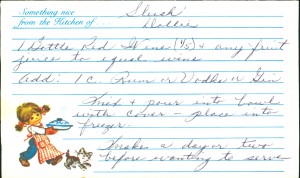 Slush
Something nice
from the Kitchen of... Dottie
1 Bottle Red Wine (1/5) & any fruit
juice to equal wine
Add: 1 c. Rum or Vodka or Gin
& pour into bowl
with cover - place into
freezer.
Make a day or two
before wanting to serve